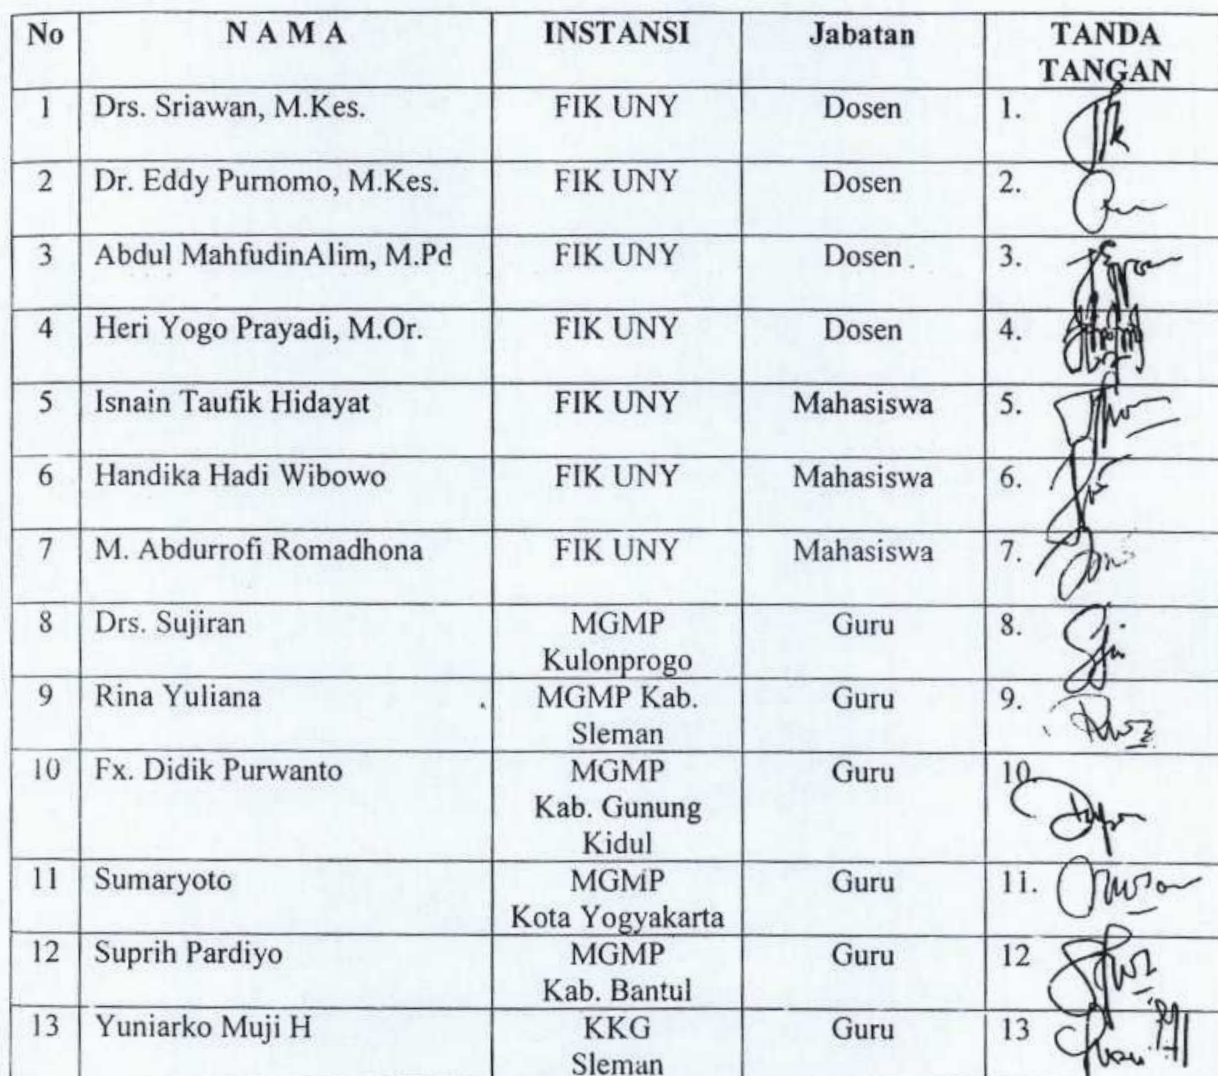 No N A M A INSTANSI Jabatan TANDA
TANGAN
1 Drs. Sriawan, M.Kes. FIK UNY Dosen 1.
2 Dr. Eddy Purnomo, M.Kes. FIK UNY Dosen 2.
3 Abdul MahfudinAlim, M.Pd FIK UNY Dosen 3.
4 Heri Yogo Prayadi, M.Or. FIK UNY Dosen 4.
5 Isnain Taufik Hidayat FIK UNY Mahasiswa 5.
6 Handika Hadi Wibowo FIK UNY Mahasiswa 6.
7 M. Abdurrofi Romadhona FIK UNY Mahasiswa 7.
8 Drs. Sujiran MGMP Guru 8.
Kulonprogo
9 Rina Yuliana MGMP Kab. Guru 9.
Sleman
10 Fx. Didik Purwanto MGMP Guru 10
Kab. Gunung
Kidul
11 Sumaryoto MGMP Guru 11.
Kota Yogyakarta
12 Suprih Pardiyo MGMP Guru 12
Kab. Bantul
13 Yuniarko Muji H KKG Guru 13
Sleman